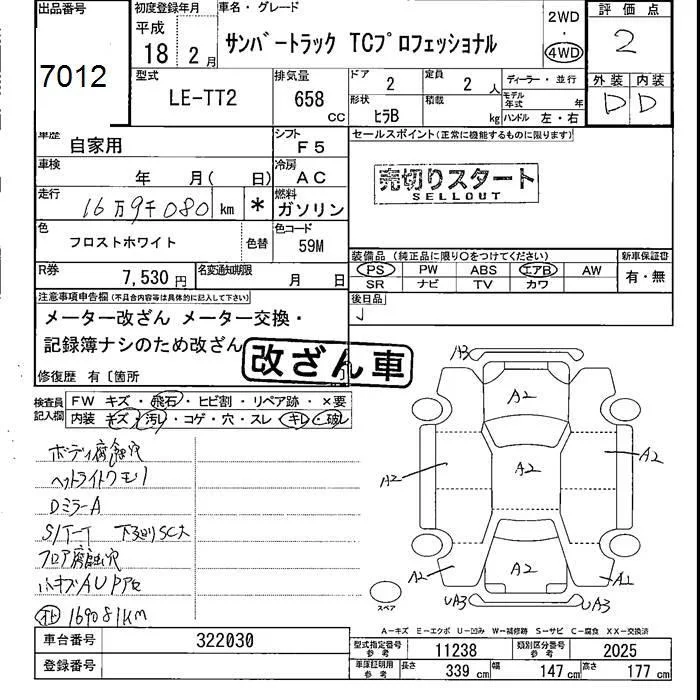 出品番号
7012
初度登録年月
平成
18年 2月
車名・グレード
サンバートラック TCプロフェッショナル
2WD
・
4WD
評価点
2
外装 内装
D D
型式
LE-TT2
排気量
658
CC
ドア
2
定員
2人
形状
ヒラB
積載
kg
ディーラー・並行
モデル年式 年
ハンドル 左・右
車歴
自家用
シフト
F5
車検
年 月( 日)
冷房
AC
走行
16万9千080 km *
燃料
ガソリン
色
フロストホワイト
色替
色コード
59M
R券
7,530円
名変通知期限
月 日
セールスポイント(正常に機能するものに限ります)
売切りスタート
SELLOUT
装備品 (純正品に限り○をつけてください)
PS PW ABS エアB AW
SR ナビ TV カワ
新車保証書
有・無
後日品
注意事項申告欄(不具合内容等は具体的に記入して下さい)
メーター改ざん メーター交換・
記録簿ナシのため改ざん
改ざん車
修復歴 有〔箇所
検査員
記入欄
FW キズ・飛石・ヒビ割・リペア跡・×要
内装 キズ・汚レ・コゲ・穴・スレ・キレ・破レ
ボディ腐食穴
ヘッドライトクモリ
DミラーA
下廻りSC大
フロア腐食穴
169081KM
A3
A2
A2
A2
A2
A2
A2
A2
A2
UA3
UA3
スペア
A－キズ E－エクボ U－凹み W－補修跡 S－サビ C－腐食 XX－交換済
車台番号
322030
登録番号
型式指定番号
参考
11238
類別区分番号
参考
2025
車庫証明用
参考
長さ 339cm
幅 147cm
高さ 177cm